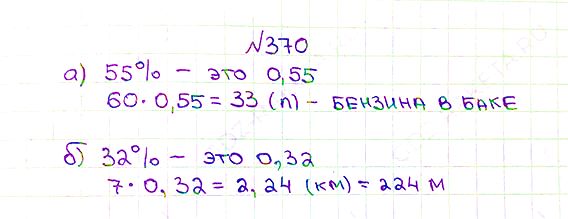 №370
а) 55% – это 0,55
60·0,55=33 (л) – БЕНЗИНА В БАКЕ
б) 32% – это 0,32
7·0,32=2,24 (км)=224 м